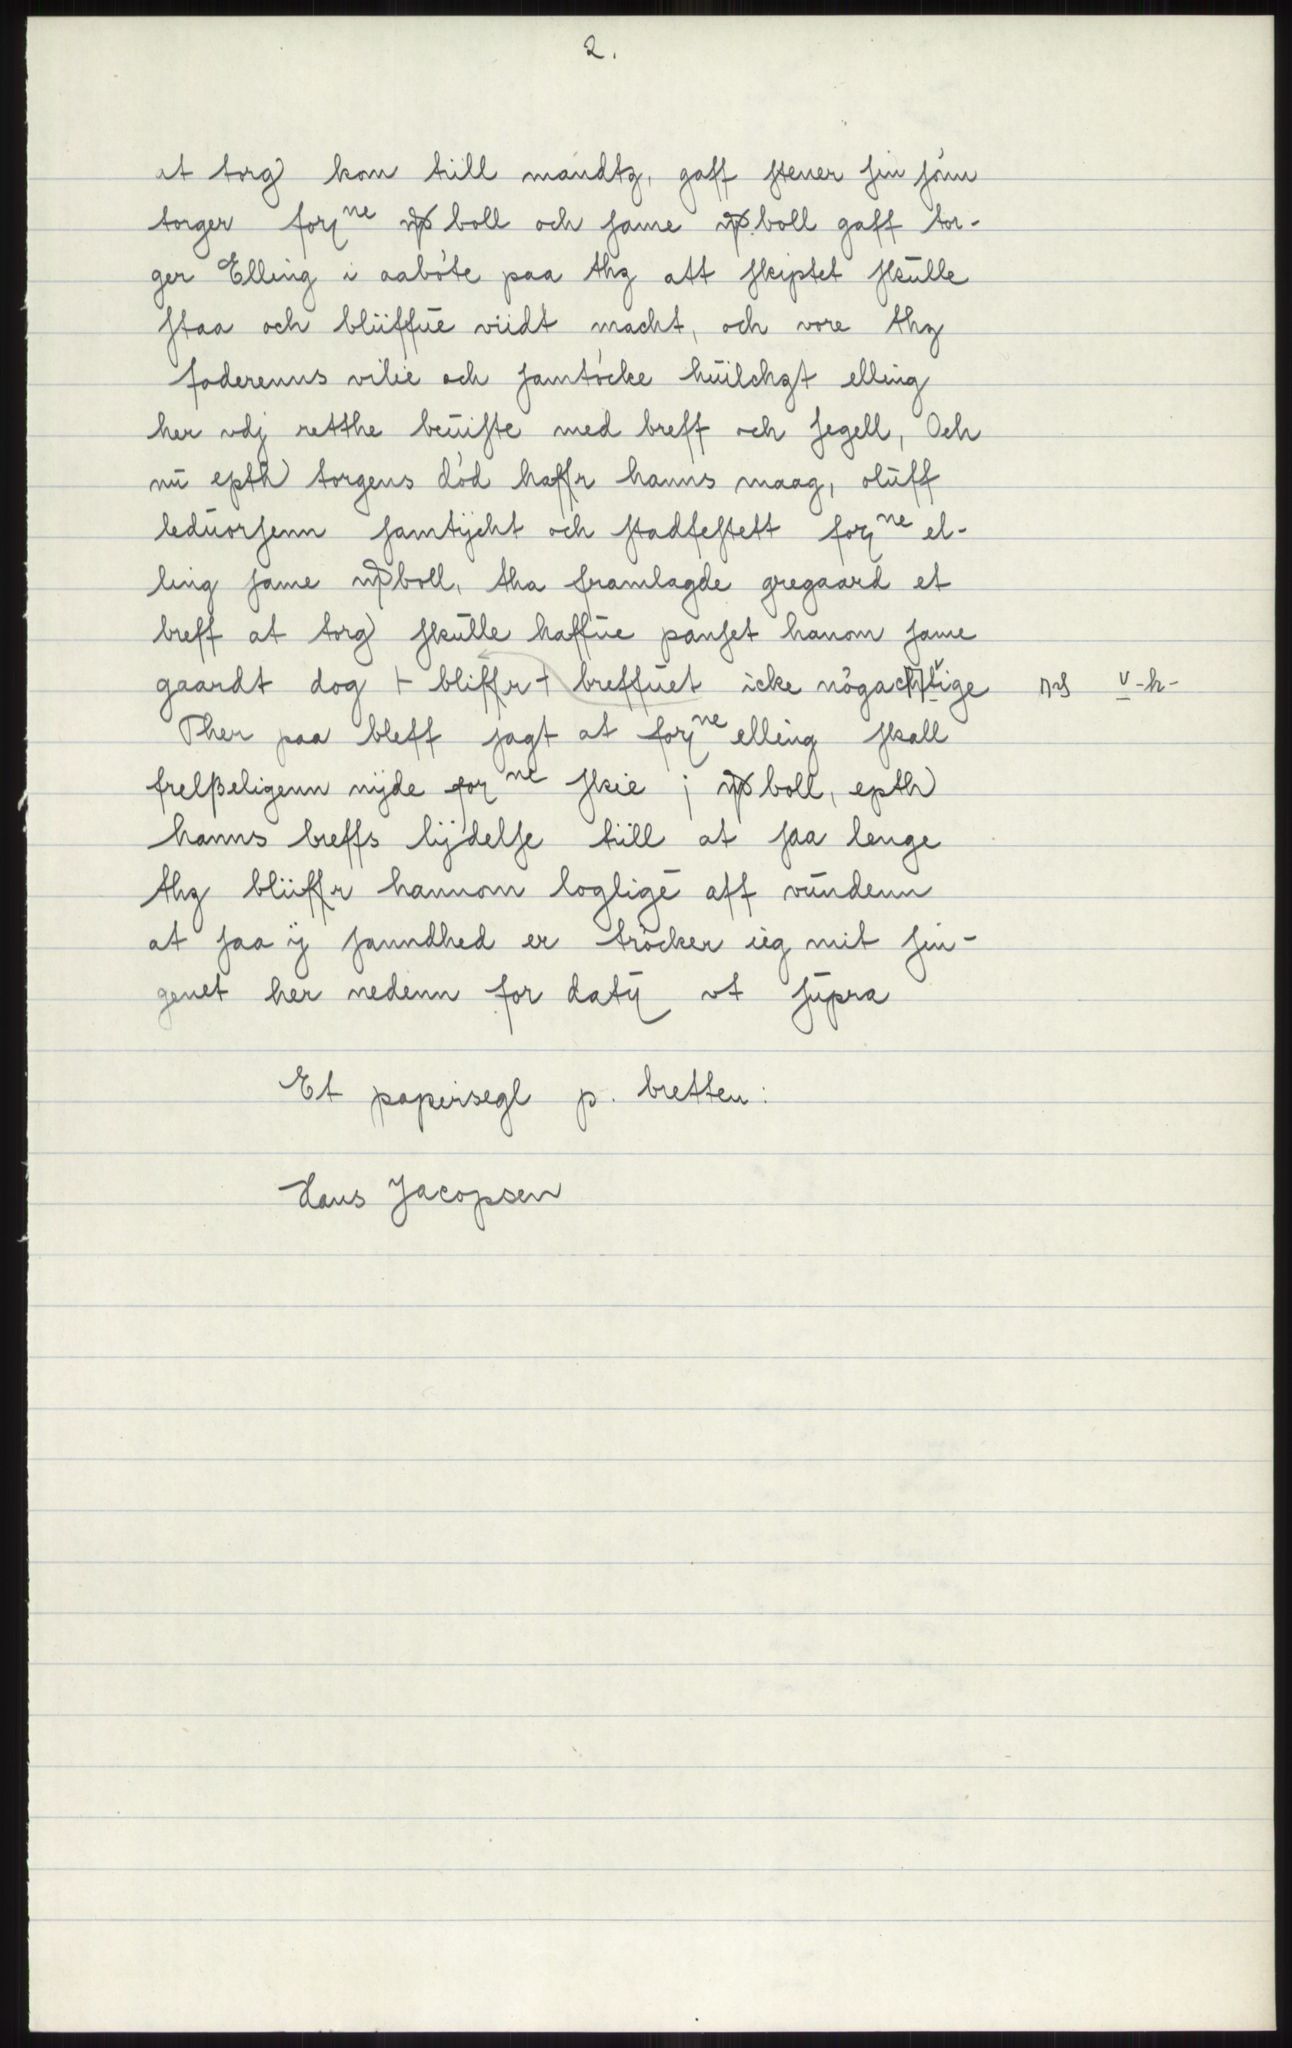 2.
at torg) kom tiill mandtz, gaff stener sin sónn
torger forne wpboll och same wpboll gaff tor-
ger Elling i aabóte paa thz att skiptet skulle
staa och bliiffue viidt macht, och vore thz
faderenns vilie och samtócke huilchzt elling
her vdj retthe beuiste med breff och segell, Och
nu epth) torgens dód haffr hanns maag, oluff
leduorsenn samtycht och stadfestett forne el-
ling same wpboll, tha framlagde gregaard et
breff at torg) skulle haffue panset hanom same
gaardt dog + bliffr + breffuet icke nógachtige v-h-
Ther paa bleff sagt at forne elling skall
frelßeligenn nyde forne skie j wpboll, epth)
hanns breffs lydelse tiill at saa lenge
thz bliiffr hannom loglige aff vundenn
at saa ij sanndhed er trócker ieg mit sin-
genet her nedenn for daty vt supra
Et papirsegl p. bretten:
Hans Jacopsen